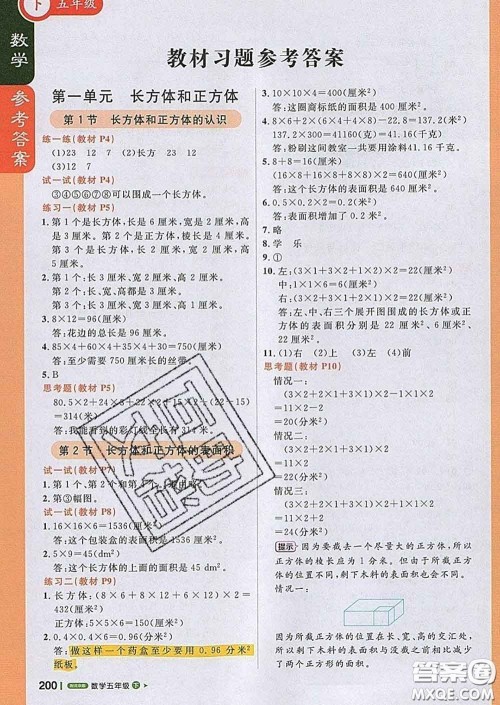 下 五年级
数学
参考答案
教材习题参考答案
第一单元 长方体和正方体
第1节 长方体和正方体的认识
练一练(教材 P4)
(1)23 12 7 (2)长方 23 12
(3)12 7
试一试(教材 P4)
③④⑤⑥⑦⑧可以围成一个长方体。
练习一(教材 P5)
1. 第1个是长方体,长是6厘米,宽是2厘米,高
是3厘米。
第2个是正方体,棱长是4厘米。
第3个是长方体,
2. 第1个:长3厘米、宽2厘米、高2厘米。
第2个:长3厘米、宽2厘米、高1厘米。
3. 8×12=96(厘米)
答:花边的总长是96厘米。
4. 85×4+60×4+35×4+30=750(厘米)
答:至少需要750厘米长的丝带。
5. B
思考题(教材 P5)
=314(米)
第2节 长方体和正方体的表面积
试一试(教材 P7)
2. ③幅图。
试一试(教材 P8)
1. 16×16×6=1536(厘米²)
答:这个包装盒的表面积是1536厘米²。
2. 5×9=45(dm²)
答:这个长方体的上面的面积是45 dm²。
练习二(教材 P9)
正方体:5×5×6=150(厘米²)
2. 0.4×0.4×6=0.96(分米²)
答:做这样一个药盒至少要用0.96分米²
纸板。
3. 10×10×4=400(厘米²)
答:这圈商标纸的面积是400厘米²。
137.2×300=41160(克)=41.16(千克)
答:粉刷这间教室一共要用涂料41.16千克。
5. 8+8=16(厘米)
(16×8+16×8+8×8)×2=640(厘米²)
答:这个长方体的表面积是640厘米²。
6. 0.5×0.2×2=0.2(米²)
答:表面积增加了0.2米²。
7. 略
8. 学 乐
9. ①
10. 左:(3×1+3×2+1×2)×2=22(厘米²)
中:1×1×6=6(厘米²)
右:(3×2+3×1+2×1)×2=22(厘米²)
答:左、中、右三个展开图围成的长方体或正
方体的表面积分别是22厘米²、6厘米²、
22厘米²。
11. (1)右 (2)上 (3)左 (4)前
思考题(教材 P10)
情况一:
(3×2+3×1+2×1)×2-1×1×2
=22-2
=20(分米²)
情况二:
(3×2+3×1+2×1)×2
=11×2
=22(分米²)
情况三:
(3×2+3×1+2×1)×2+1×1×2
=22+2
=24(分米²)
提示 因为要截去一个尽量大的正方体,所以
正方体的棱长应为1分米。但所截正方
体的位置不同,剩下木料的表面积也会不同。
情况一:
因为所截正方体在长、宽、高的交汇处,
所以剩下木料的表面积比原来的表面积减少
了两个正方形的面积。
200 数学五年级 下
答案圈
MXQE.COM